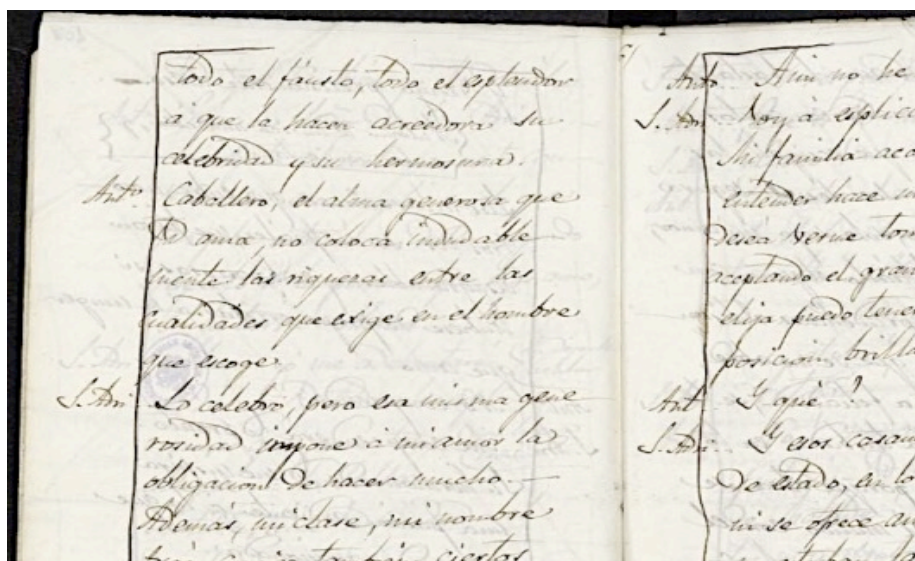 todo el fausto, todo el esplendor
á que la hacen acreedora su
celebridad y su hermosura.
Antº Caballero, el alma generosa que
Vd ama, no coloca indudable
mente las riquezas entre las
cualidades que exige en el hombre
que escoge.
S. Adri Lo celebro, pero esa misma gene
rosidad impone á mi amor la
obligacion de hacer mucho.
Además, mi clase, mi nombre
ciertas
Antº Aun no he
S. Adri Voy á esplica
Mi familia aca
entender hace
desea verme tom
aceptando el gra
elija puedo tener
posicion brilla
Ant Y qué?
S. Adri. Y esos casam
de estado, en lo
ni se ofrece